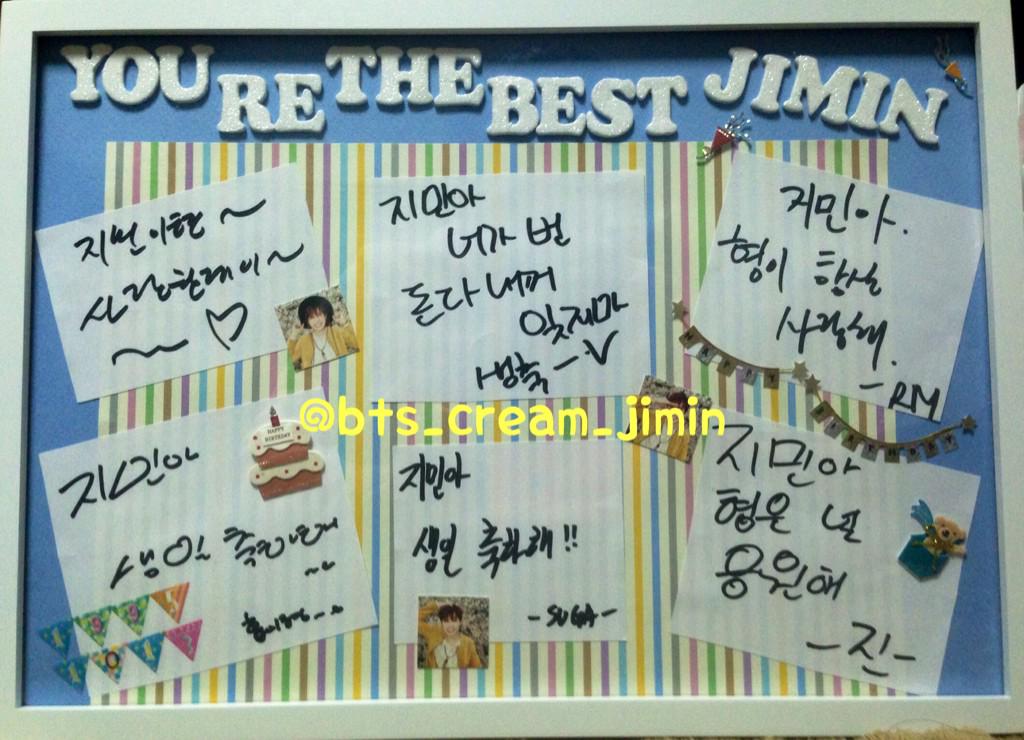 YOU RE THE BEST JIMIN
지민이형~
사랑한데이~
~♡
지민아
너가 번
돈 다 내꺼
잊지마
생축-V
지민아.
형이 항상
사랑해.
-RM
HAPPY
BIRTHDAY
@bts_cream_jimin
지민아
생일 축하한데
~~
HAPPY
BIRTHDAY
1995
1013
지민아
생일 축하해!!
-SUGA-
지민아
형은 널
응원해
-진-